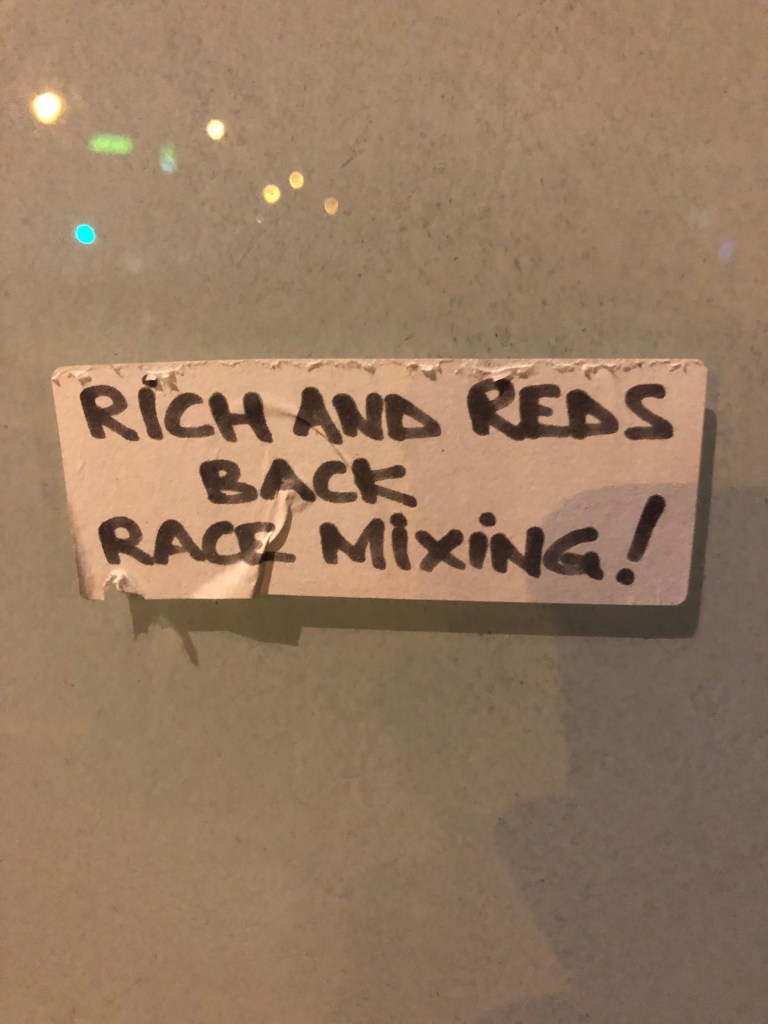 RiCH AND REDS
BACK
RACE MiXiNG!